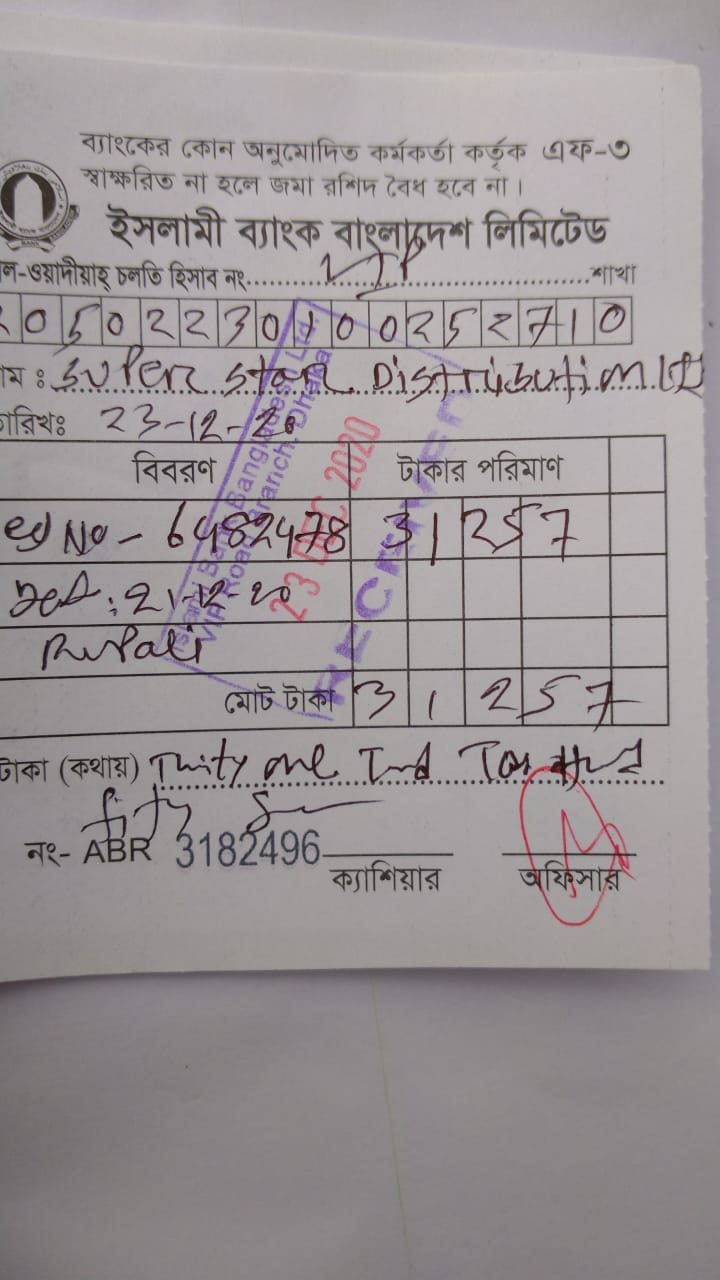 ব্যাংকের কোন অনুমোদিত কর্মকর্তা কর্তৃক এফ-৩
স্বাক্ষরিত না হলে জমা রশিদ বৈধ হবে না।
ইসলামী ব্যাংক বাংলাদেশ লিমিটেড
ল-ওয়াদীয়াহ্ চলতি হিসাব নং.......VIP.......শাখা
20502230100252710
াম : Super Star Distribution Ltd
ারিখঃ 23-12-20
বিবরণ টাকার পরিমাণ
No - 6482478 31257
21-12-20
Rupali
মোট টাকা 31257
টাকা (কথায়) Thirty one
fifty
নং- ABR 3182496
ক্যাশিয়ার অফিসার
Islami Bank Bangladesh Ltd.
VIP Road Branch. Dhaka
23 DEC 2020
RECEIVED